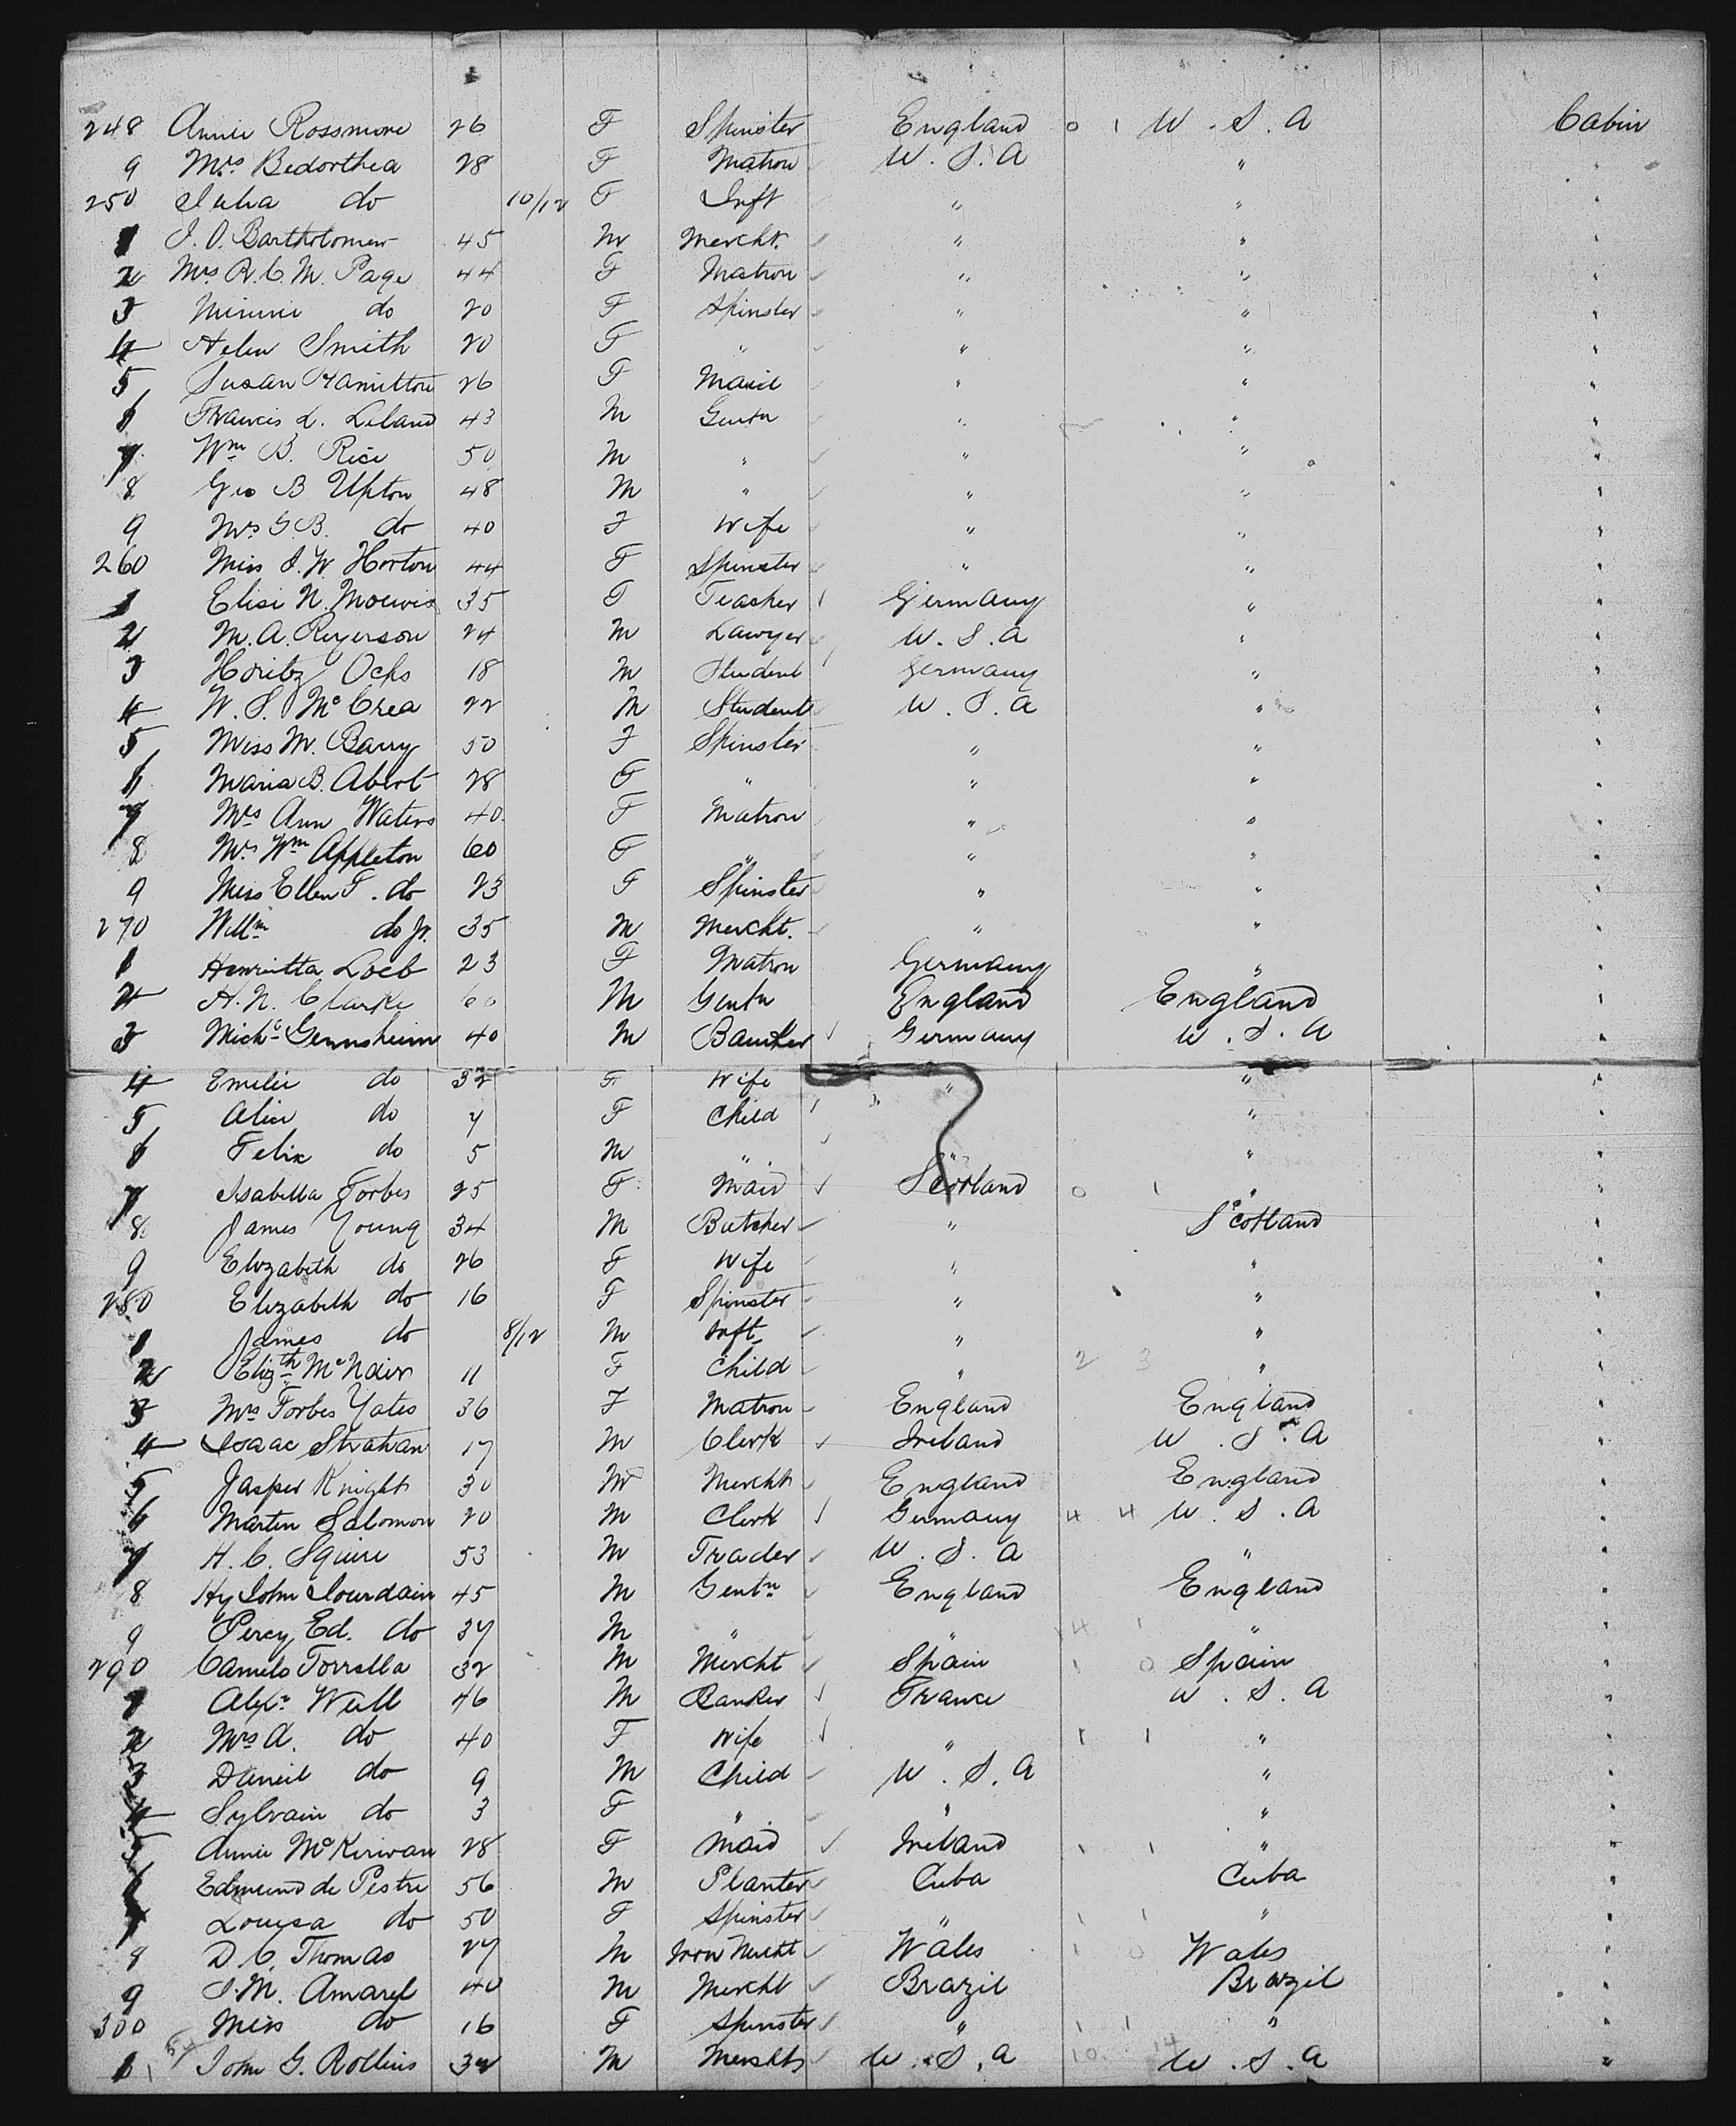 248 Annie Rossmore 26 F Spinster England 0 1 U.S.A Cabin
9 Mrs. Bedorthea 28 F Matron U.S.A " "
250 Julia do 10/12 F Inft " " "
1 J. O. Bartholomew 45 M Mercht. " " "
2 Mrs. R. C. M. Page 44 F Matron " " "
3 Minnie do 20 F Spinster " " "
4 Helen Smith 20 F " " " "
5 Susan Hamilton 26 F Maid " " "
6 Francis L. Leland 43 M Gentn " " "
7 Wm B. Rice 50 M " " " "
8 Geo B Upton 48 M " " " "
9 Mrs G B. do 40 F Wife " " "
260 Miss J. W. Horton 44 F Spinster " " "
1 Elise N. 35 F Teacher Germany " "
2 M. A. Ryerson 24 M Lawyer U.S.A " "
3 Moritz Ochs 18 M Student Germany " "
4 W. S. McCrea 22 M Student U.S.A " "
5 Miss M. Barry 50 F Spinster " " "
6 Maria B. Abert 28 F " " " "
7 Mrs Ann Waters 40 F Matron " " "
8 Mrs Wm Appleton 60 F " " " "
9 Miss Ellen F. do 23 F Spinster " " "
270 Willm do Jr. 35 M Mercht. " " "
1 Henrietta Loeb 23 F Matron Germany " "
2 H. N. Clarke 60 M Gentn England England "
3 Michl Gernsheim 40 M Banker Germany U.S.A "
4 Emilie do 32 F Wife " " "
5 Alice do 7 F Child " " "
6 Felix do 5 M " " " "
7 Isabella Forbes 25 F Maid Scotland 0 1 " "
8 James Young 34 M Butcher " Scotland "
9 Elizabeth do 26 F Wife " " "
280 Elizabeth do 16 F Spinster " " "
1 James do 8/12 M Inft " " "
2 Elizth McNair 11 F Child " 2 3 " "
3 Mrs Forbes Yates 36 F Matron England England "
4 Isaac Strahan 17 M Clerk Ireland U.S.A "
5 Jasper Knight 30 M Mercht England England "
6 Martin Salomon 20 M Clerk Germany 4 4 U.S.A "
7 H. C. Squire 53 M Trader U.S.A " "
8 Hy John Jourdain 45 M Gentn England England "
9 Percy Ed. do 37 M " " 4 1 " "
290 Camilo Torrella 32 M Mercht Spain 1 0 Spain "
1 Alexr Weill 46 M Banker France U.S.A "
2 Mrs A. do 40 F Wife " 1 1 " "
3 Daneil do 9 M Child U.S.A " "
4 Sylvain do 3 F " " " "
5 Annie McKerivan 28 F Maid Ireland 1 1 " "
6 Edmund de Pestre 56 M Planter Cuba Cuba "
7 Louisa do 50 F Spinster " 1 1 " "
8 D C. Thomas 27 M Iron Mercht Wales 1 0 Wales "
9 J. M. Amaral 40 M Mercht Brazil Brazil "
300 Miss do 16 F Spinster " 1 1 " "
1 John G. Rollins 32 M Merchts U.S.A 10 14 U.S.A "